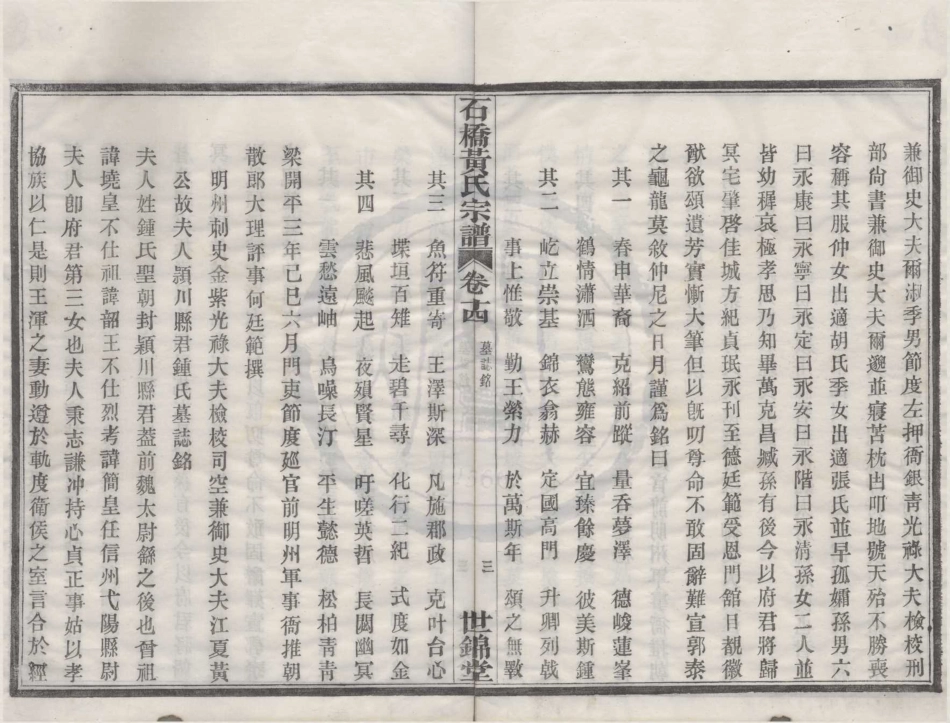 兼御史大夫爾淑季男節度左押衙銀青光祿大夫檢校刑
部尚書兼御史大夫爾邈並寢苫枕凷叩地號天殆不勝喪
容稱其服仲女出適胡氏季女出適張氏並早孤孀孫男六
曰永康曰永寧曰永定曰永安曰永階曰永清孫女二人並
皆幼稺哀極孝思乃知畢萬克昌臧孫有後今以府君將歸
冥宅肇啓佳城方紀貞珉永刊至德廷範受恩門舘日覩徽
猷欲頌遺芳實慚大筆但以旣叨尊命不敢固辭難宣郭泰
之龜龍莫敘仲尼之日月謹爲銘曰
其一 春申華裔 克紹前蹤 量吞夢澤 德峻蓮峯
鶴情瀟洒 鸞態雍容 宜臻餘慶 彼美斯鍾
其二 屹立崇基 錦衣翕赫 定國高門 升卿列戟
事上惟敬 勤王榮力 於萬斯年 頌之無斁
石橋黃氏宗譜 卷十四 墓誌銘 三 世錦堂
其三 魚符重寄 王澤斯深 凡施郡政 克叶台心
堞垣百雉 走碧千尋 化行二紀 式度如金
其四 悲風颷起 夜殞賢星 吁嗟英哲 長閟幽冥
雲愁遠岫 鳥噪長汀 平生懿德 松柏青青
梁開平三年己巳六月門吏節度廵官前明州軍事衙推朝
散郎大理評事何廷範撰
明州刺史金紫光祿大夫檢校司空兼御史大夫江夏黃
公故夫人潁川縣君鍾氏墓誌銘
夫人姓鍾氏聖朝封潁川縣君葢前魏太尉繇之後也曾祖
諱墝皇不仕祖諱韶王不仕烈考諱簡皇任信州弋陽縣尉
夫人卽府君第三女也夫人秉志謙冲持心貞正事姑以孝
協族以仁是則王渾之妻動遵於軌度衛侯之室言合於經